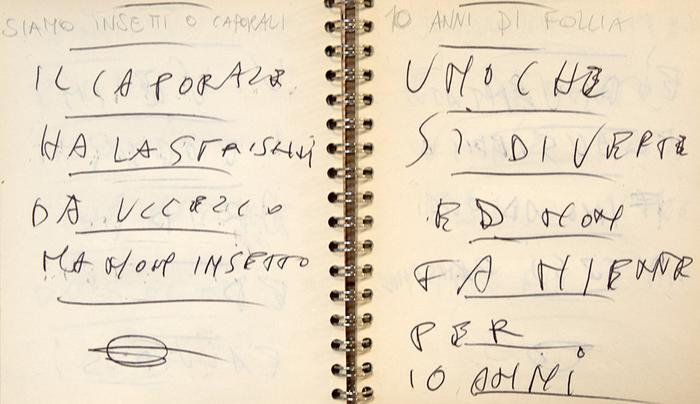 SIAMO INSETTI O CAPORALI
IL CAPORALE
HA LA STRISCIA
DA UCCELLO
MA NON INSETTO
10 ANNI DI FOLLIA
UNO CHE
SI DIVERTE
ED NON
FA NIENTE
PER
10 ANNI